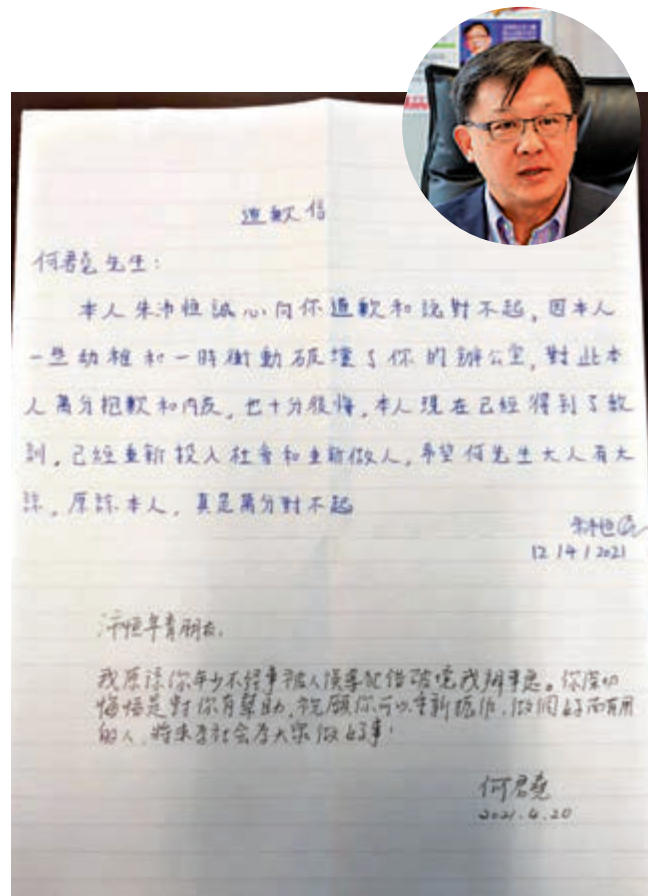 道歉信
何君堯先生:
本人朱沛恒誠心向你道歉和說對不起,因本人
一些幼稚和一時衝動破壞了你的辦公室,對此本
人萬分抱歉和內疚,也十分後悔,本人現在已經得到了教
訓,已經重新投入社會和重新做人,希望何先生大人有大
諒,原諒本人,真是萬分對不起
12/4/2021
沛恒年青朋友,
我原諒你年少不經事被人誤導犯錯破壞我辦事處。你深切
悔悟是對你有幫助,祝願你可以重新振作,做個好而有用
的人,將來為社會為大眾做好事!
何君堯
2021.4.20